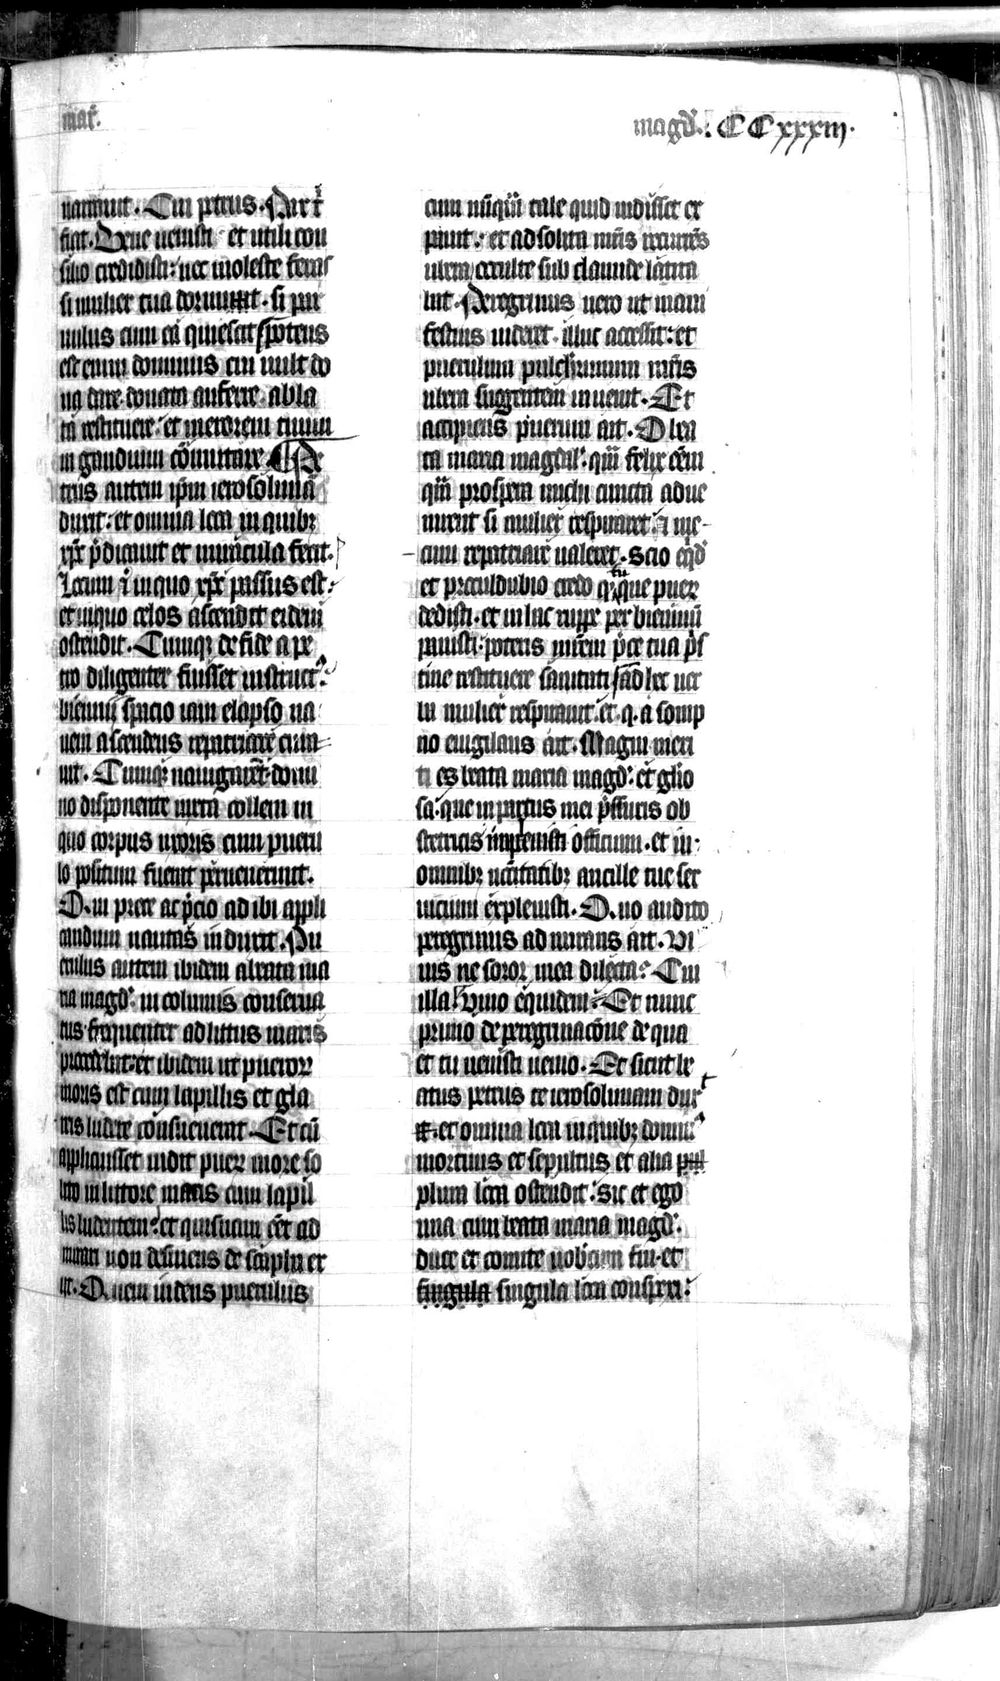 mar̄.
magd̄. CCxxxiij.
narrauit. Cui petrus. Pax t̄
fiat. Bene uenisti et utili con
silio credidisti: nec moleste feras
si mulier tua dormit. si par
uulus cum ea quiescat potens
est enim dominus cui uult do
na dare donata auferre abla
ta restituere. et merorem tuum
in gaudium co̅mutare Pe
trus autem ip̄m ierosolimā
duxit. et omnia loca in quibꝫ
xp̄c p̄dicauit et miracula fecit.
Locum ī in quo xp̄c passus est.
et in quo celos ascendit eidem
ostendit. Cumqꝫ de fide a pe
tro diligenter fuisset instruct᾽.
biennij spacio iam elapso na
uem ascendens repatriare cura
uit. Cumqꝫ nauigaret domi
no disponente iuxta collem in
quo corpus uxoris cum pueru
lo positum fuerat peruenerunt.
Qui prece ac p̄cio ad ibi appli
candum nautas induxit. Pu
erulus autem ibidem a beata ma
ria magd̄. in columis conserua
tus frequenter ad littus maris
procedebat et ibidem ut pueroꝝ
moris est cum lapillis et gla
reis ludere consueuerat. Et cū
applicuisset uidit puerum more so
lito in littore maris cum lapil
lis ludentem. et quisnam eēt ad
mirari non desinens de scapha ex
iit. Quem uidens puerulus
cum nūqūā tale quid uidisset ex
pauit. et ad solita mr̄is recurrēs
ubera occulte sub clamide latita
bat. Peregrinus uero ut mani
festius uideret. illuc accessit. et
puerulum pulcherrimum mr̄is
ubera suggentem inuenit. Et
accipiens puerum ait. O bea
ta maria magdal᾽. quā felix eēm
quā prospera michi cuncta adue
nirent si mulier respiraret. et me
cum repatriare ualeret. Scio eqd̄
et proculdubio credo q tu que pueꝝ
dedisti. et in hac rupe per bienniū
pauisti. poteris mr̄em p̄ce tua p̄s
tine restituere sanitati ad hec uer
ba mulier respirauit. et. q. a somp
no euigilans ait. Magni meri
ti es beata maria magd̄. et glo
sa. que in partus mei p̄ssuris ob
stetricis impleuisti officium. et in
omnibꝫ necessitatibꝫ ancille tue ser
uicium expleuisti. Quo audito
peregrinus admirans ait. Vi
uis ne soror mea dilecta. Cui
illa. Viuo equidem. Et nunc
primo de peregrinacōne de qua
et tu uenisti uenio. Et sicut be
atus petrus te ierosolimam dux᾽
it. et omnia loca in quibꝫ domin᾽
mortuus et sepultus et alia
plura loca ostendit. sic et ego
una cum beata maria magd̄.
duce et comite uobiscum fui et
singula singula loca conspexi.